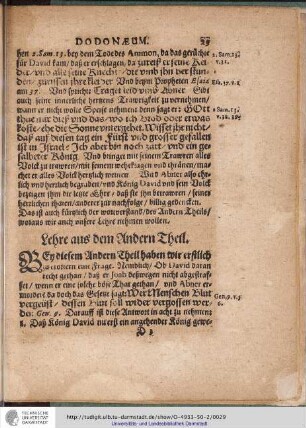 DODONÆUM.
hen 2. Sam. 13. bey dem Tode des Ammon, da das gerüchte
für David kam, daß er erschlagen, da zureiß er seine Klei-
der, vnd alle seine Knecht, die vmb jhn her stun-
den, zurissen jhre Kleider Vnd beym Propheten Esaia
am 37. Vnd solche Traget leid vmb Abner. Gibt
auch seine innerliche hertzens Trawrigkeit zu vernehmen,
wann er nicht wolle Speise nehmen denn sagt er: GOtt
thue mir diß vnd das, wo ich Brod oder etwas
koste, ehe die Sonne vntergehet. Wisset jhr nicht,
daß auff diesen tag ein Fürst vnd grosser gefallen
ist in Israel? Ich aber bin noch zart, vnd ein ge-
salbeter König. Vnd bringet mit seinem Trawren alles
Volck zu trawren, mit seinem wehklagen vnd thränen, ma-
chet er alles Volck hertzlich weinen Was Abner also ehr-
lich vnd herrlich begraben, vnd König David von sein Volck
bezeigen jhm die letzte Ehre, daß sie jhn betrawren, seiner
herrlichen thaten, anderer zur nachfolge, billig gedencken.
Das ist auch kürtzlich der wortverstand, des Andern Theils,
woraus wir auch unsere Lehre nehmen wollen.
Lehre aus dem Andern Theil.
Bey diesem Andern Theil haben wir erstlich
zu erörtern eine Frage. Nemblich, Ob David daran
recht gethan, daß er Joab deßwegen nicht abgestraf-
fet, wenn er eine solche böse That gethan, vnd Abner er-
mordet, da doch das Gesetze sagt, Wer Menschen Blut
vergeust, dessen Blut soll wider vergossen wer-
den. Gen. 9. Darauff ist diese Antwort in acht zu nehmen:
1. Daß König David zuerst ein angehender König gewe-
2. Sam. 13.
v. 31.
Esa. 37. v. 1
2. Sam. 3.
Gen. 9. v. 6
http://tudigit.ulb.tu-darmstadt.de/show/G-4933-50-2/0029
Universitäts- und Landesbibliothek Darmstadt
TECHNISCHE
UNIVERSITÄT
DARMSTADT